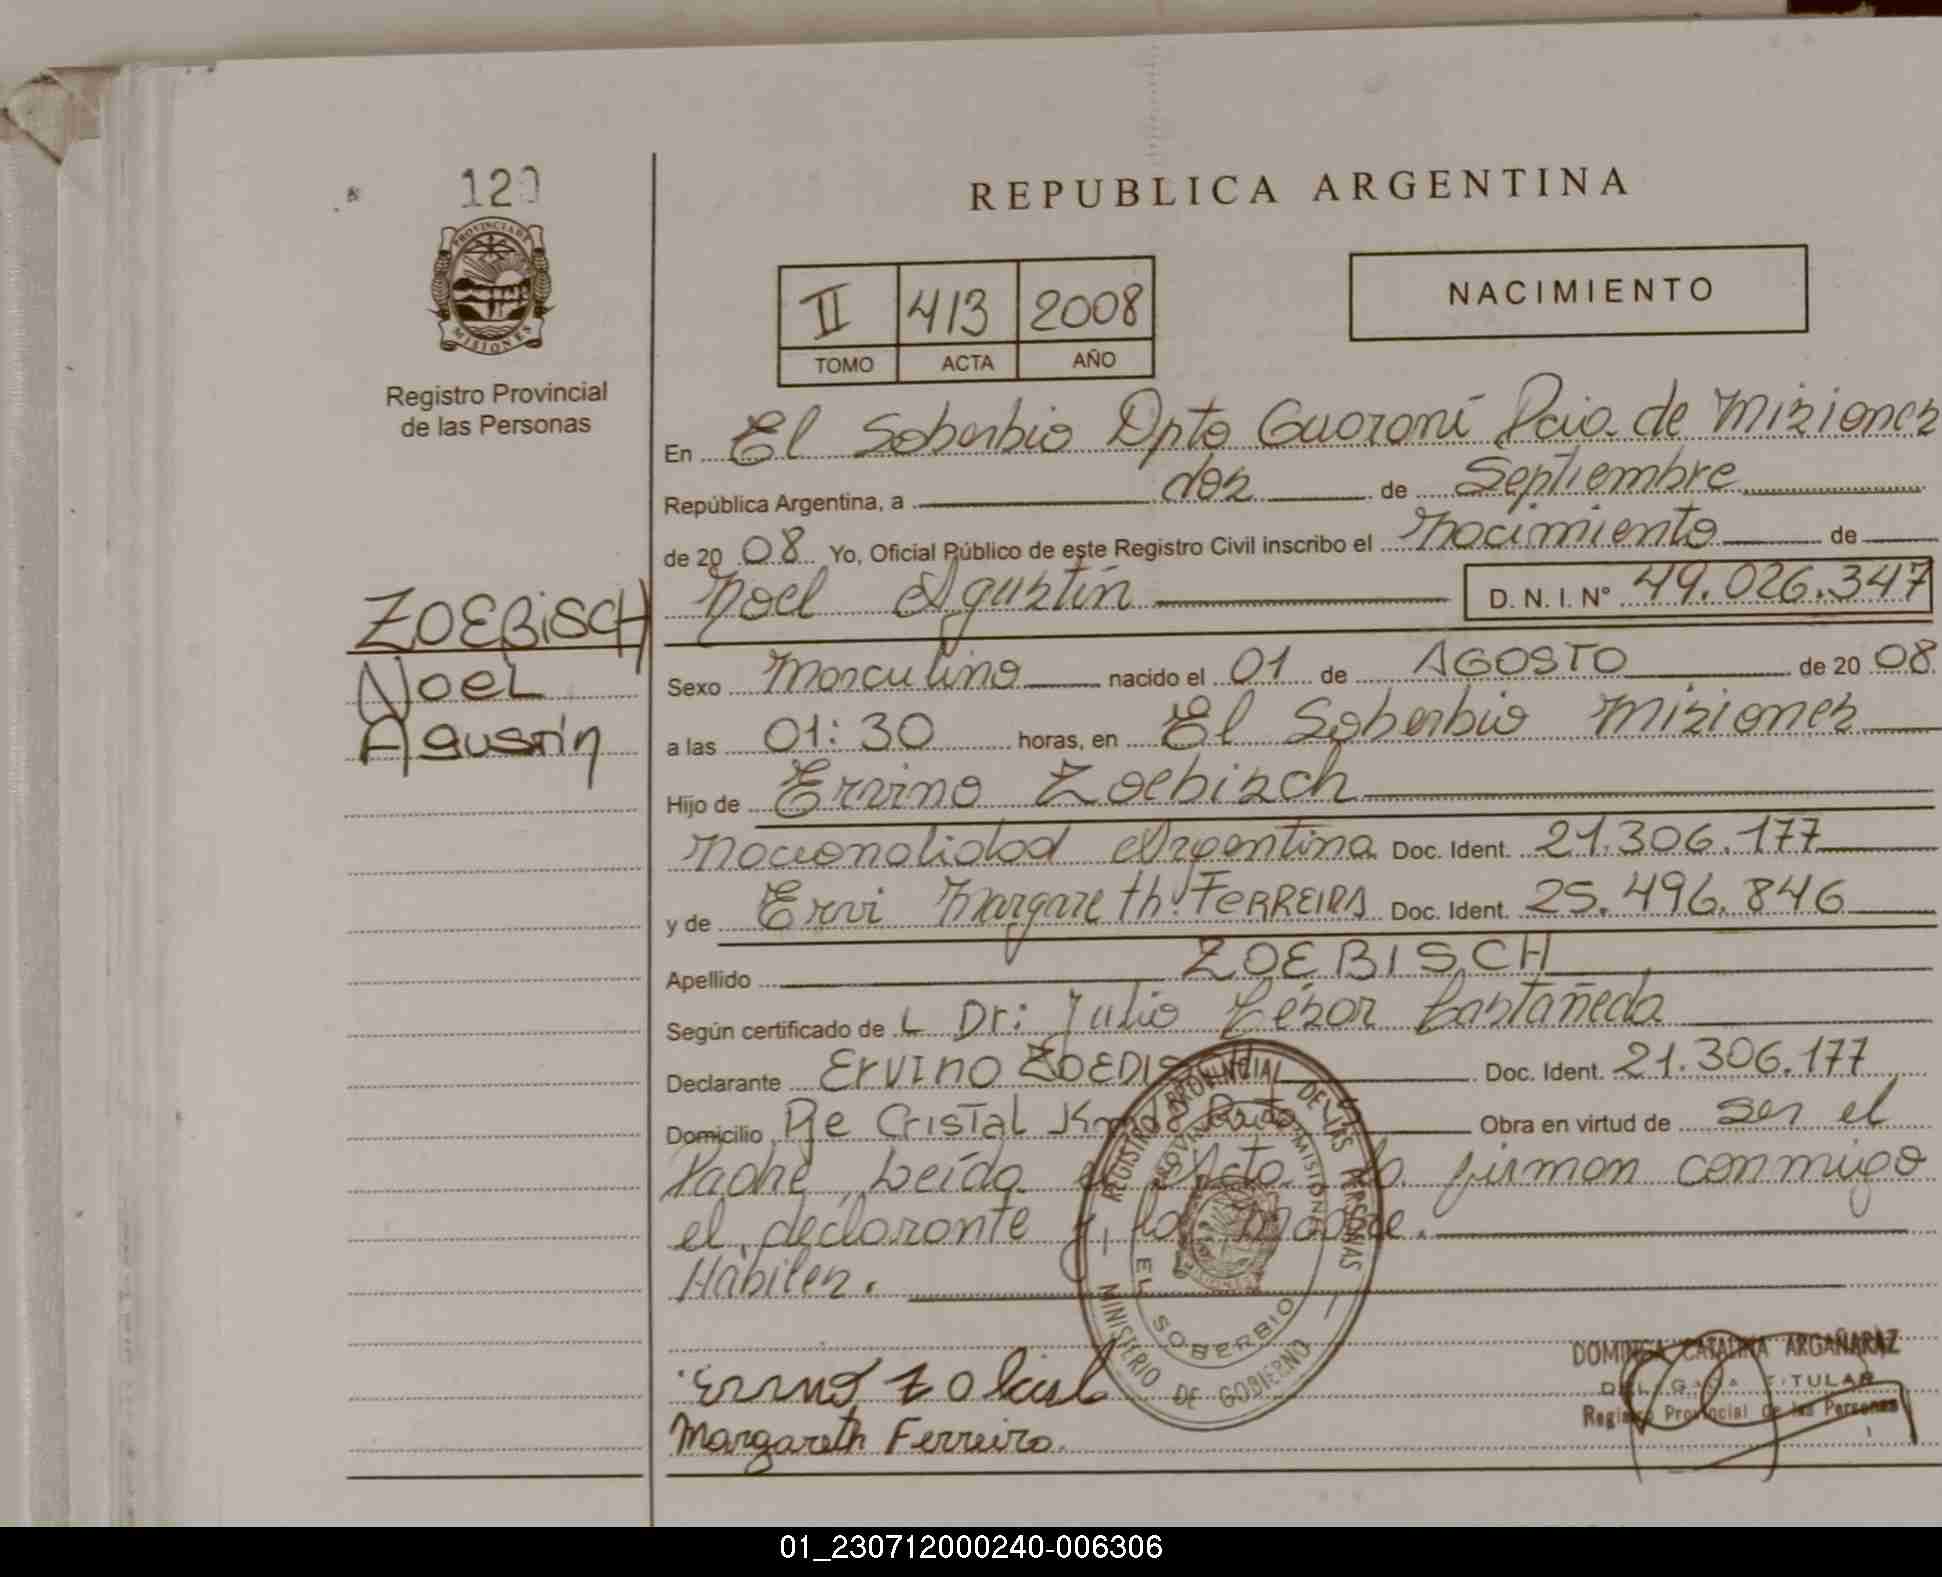 120
PROVINCIA DE
MISIONES
Registro Provincial
de las Personas
REPUBLICA ARGENTINA
II 413 2008
TOMO ACTA AÑO
NACIMIENTO
En El Soberbio Dpto Guaraní Pcia de Misiones
República Argentina, a dos de Septiembre
de 20 08 Yo, Oficial Público de este Registro Civil inscribo el Nacimiento de
Noel Agustín D. N. I. N° 49.026.347
ZOEBiSCH
NoeL
Agustín
Sexo Masculino nacido el 01 de AGOSTO de 20 08
a las 01:30 horas, en El Soberbio Misiones
Hijo de Ervino Zoebisch
Nacionalidad Argentina Doc. Ident. 21.306.177
y de Ervi Margareth FERREIRA Doc. Ident. 25.496.846
Apellido ZOEBISCH
Según certificado de L Dr: Julio César Castañeda
Declarante Ervino Doc. Ident. 21.306.177
Domicilio Pje Cristal Obra en virtud de ser el
Padre Leída el Acta la firman conmigo
el declarante y la madre.
Habiles.
REGISTRO PROVINCIAL DE LAS PERSONAS
PROVINCIA DE MISIONES
EL SOBERBIO
MINISTERIO DE GOBIERNO
Margareth Ferreira
DOMINGA CATALINA ARGAÑARAZ
DELEGADA TITULAR
Registro Provincial de las Personas
01_230712000240-006306